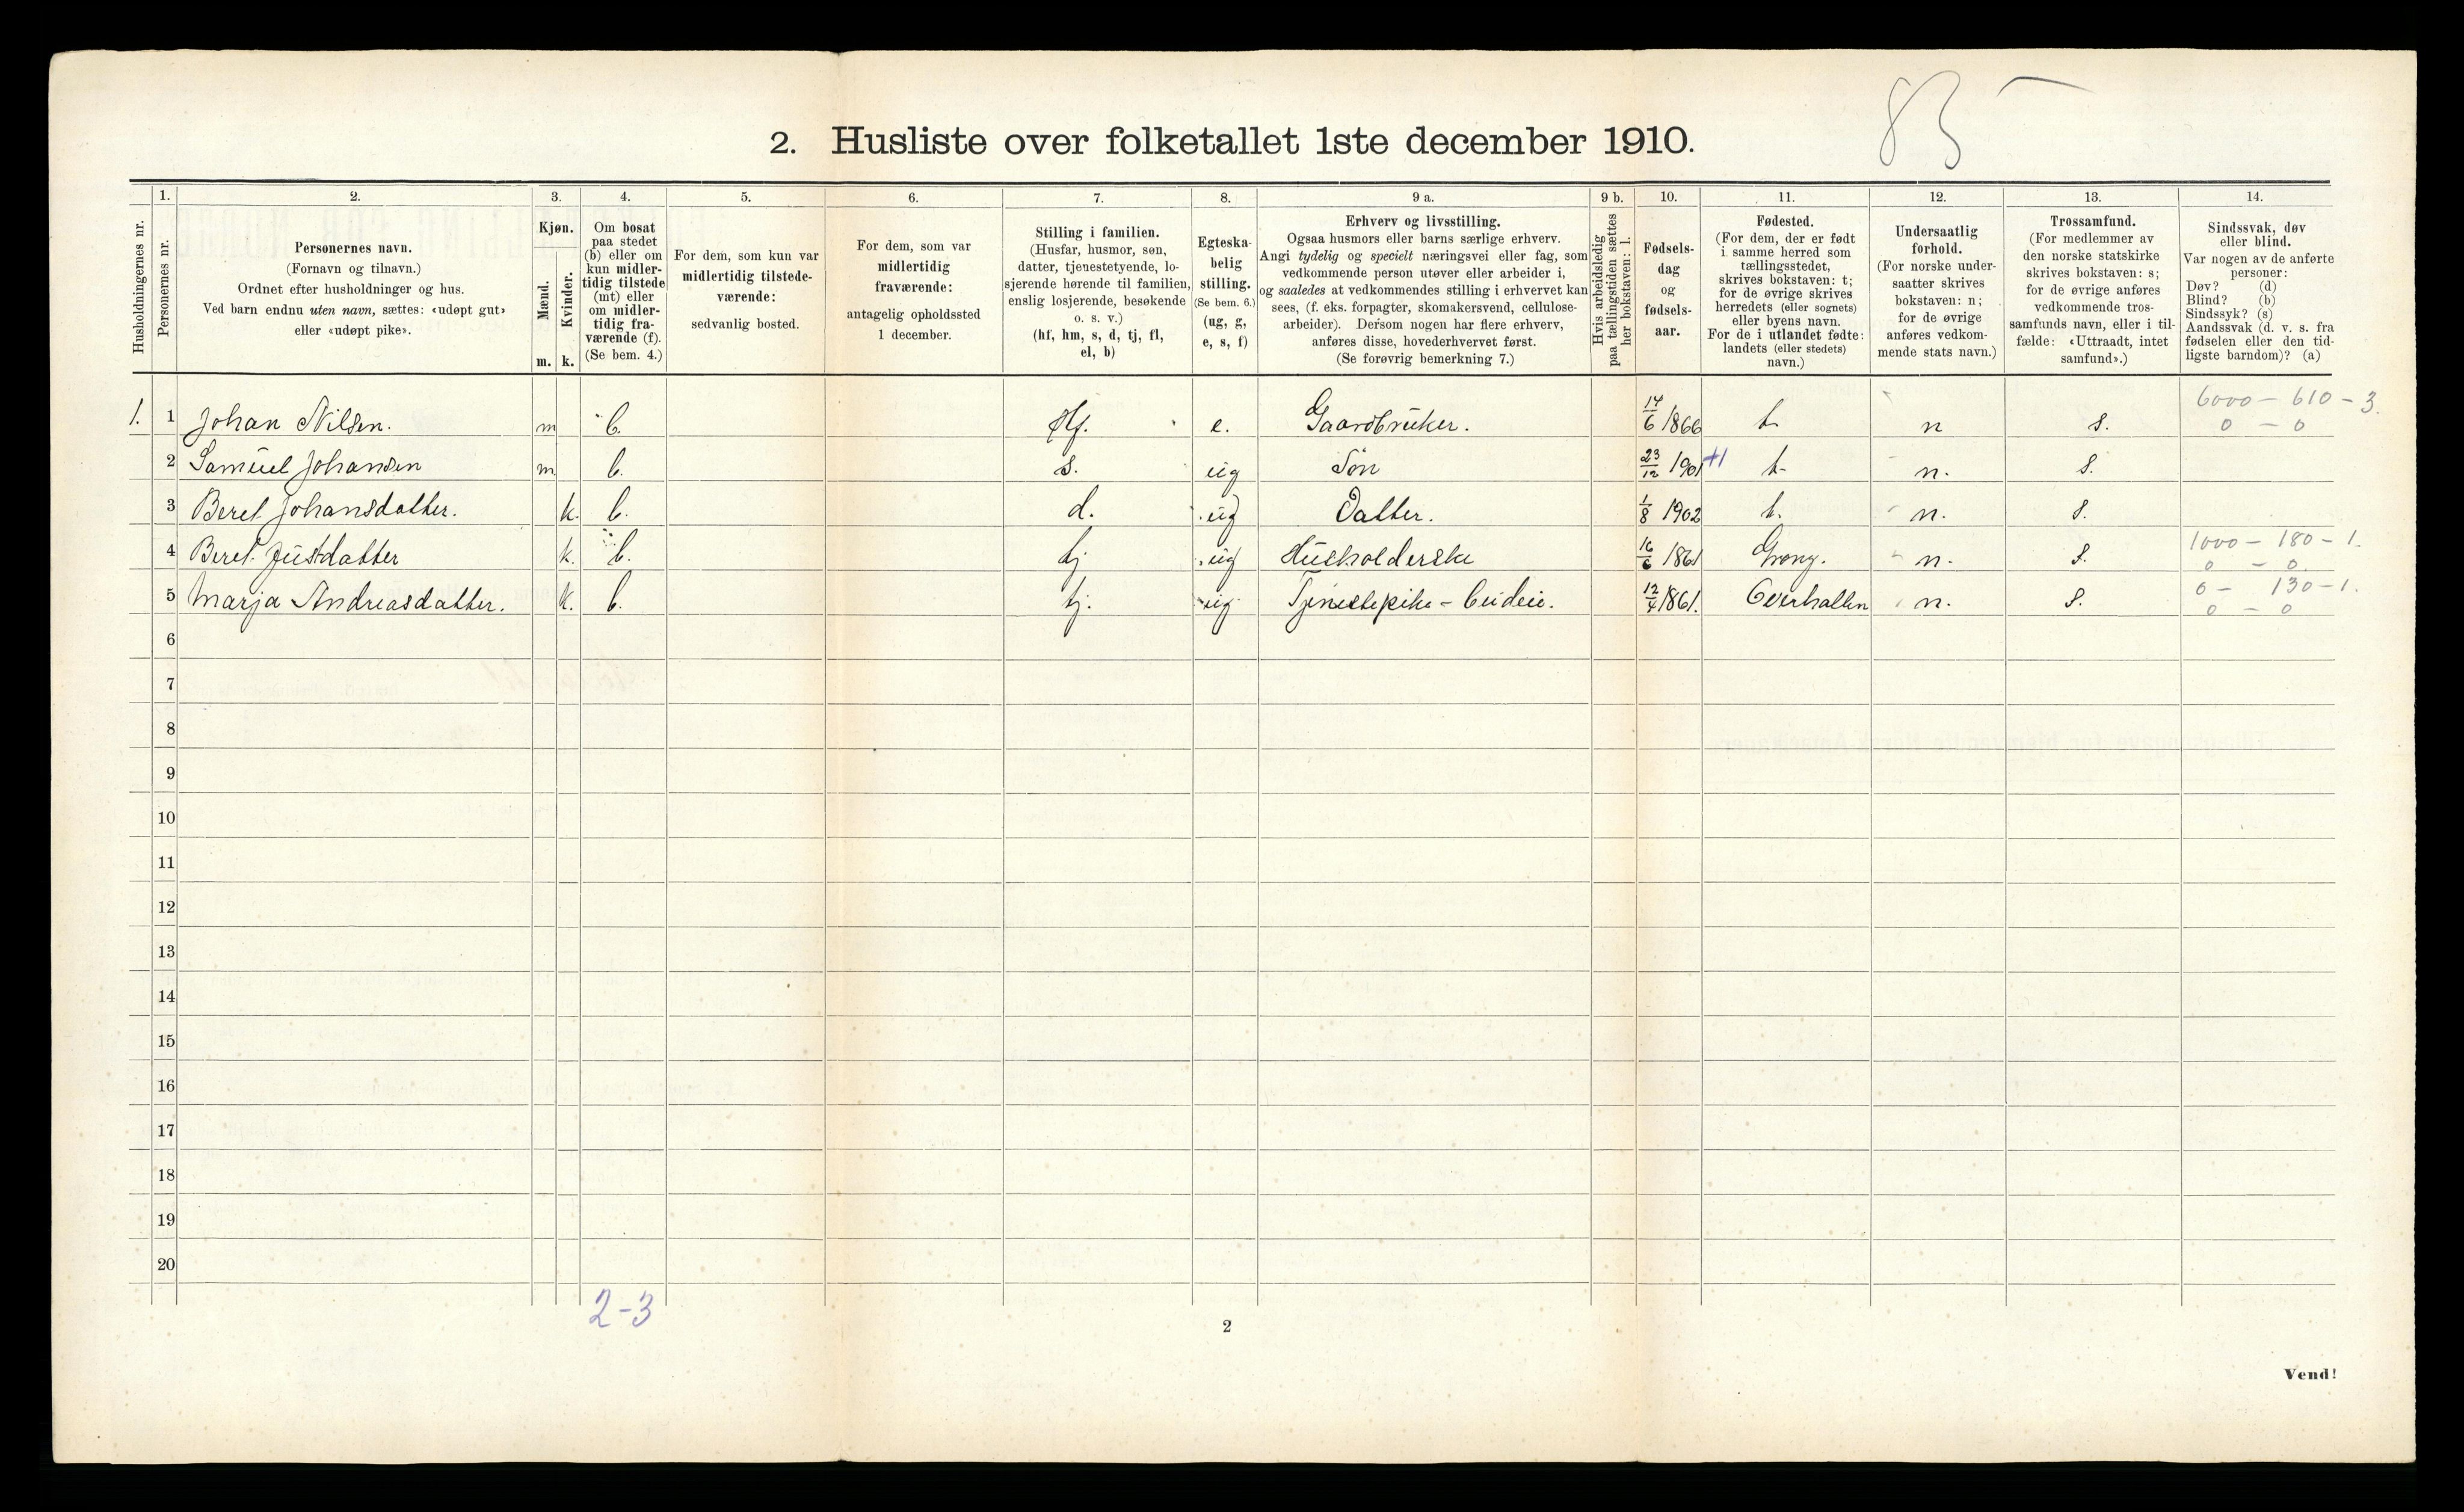 85
2. Husliste over folketallet 1ste december 1910.
Husholdningernes nr.
1.
Personernes nr.
2.
Personernes navn.
(Fornavn og tilnavn.)
Ordnet efter husholdninger og hus.
Ved barn endnu uten navn, sættes: «udøpt gut»
eller «udøpt pike».
3.
Kjøn.
Mænd.
Kvinder.
m. k.
4.
Om bosat
paa stedet
(b) eller om
kun midler-
tidig tilstede
(mt) eller
om midler-
tidig fra-
værende (f).
(Se bem. 4.)
5.
For dem, som kun var
midlertidig tilstede-
værende:
sedvanlig bosted.
6.
For dem, som var
midlertidig
fraværende:
antagelig opholdssted
1 december.
7.
Stilling i familien.
(Husfar, husmor, søn,
datter, tjenestetyende, lo-
sjerende hørende til familien,
enslig losjerende, besøkende
o. s. v.)
(hf, hm, s, d, tj, fl,
el, b)
8.
Egteska-
belig
stilling.
(Se bem. 6.)
(ug, g,
e, s, f)
9 a.
Erhverv og livsstilling.
Ogsaa husmors eller barns særlige erhverv.
Angi tydelig og specielt næringsvei eller fag, som
vedkommende person utøver eller arbeider i,
og saaledes at vedkommendes stilling i erhvervet kan
sees, (f. eks. forpagter, skomakersvend, cellulose-
arbeider). Dersom nogen har flere erhverv,
anføres disse, hovederhvervet først.
(Se forøvrig bemerkning 7.)
9 b.
Hvis arbeidsledig
paa tællingstiden sættes
her bokstaven: l.
10.
Fødsels-
dag
og
fødsels-
aar.
11.
Fødested.
(For dem, der er født
i samme herred som
tællingsstedet,
skrives bokstaven: t;
for de øvrige skrives
herredets (eller sognets)
eller byens navn.
For de i utlandet fødte:
landets (eller stedets)
navn.)
12.
Undersaatlig
forhold.
(For norske under-
saatter skrives
bokstaven: n;
for de øvrige
anføres vedkom-
mende stats navn.)
13.
Trossamfund.
(For medlemmer av
den norske statskirke
skrives bokstaven: s;
for de øvrige anføres
vedkommende tros-
samfunds navn, eller i til-
fælde: «Uttraadt, intet
samfund».)
14.
Sindssvak, døv
eller blind.
Var nogen av de anførte
personer:
Døv? (d)
Blind? (b)
Sindssyk? (s)
Aandssvak (d. v. s. fra
fødselen eller den tid-
ligste barndom)? (a)
1. 1 Johan Nilsen. m b. Hf. e. Gaardbruker. 14/6 1866 t. n s. 6000 - 610 - 3.
0 - 0
2 Samuel Johansen m b. s. ug Søn 23/12 1901 +1 t. n. s.
3 Beret Johansdatter. k. b. d. ug Datter. 1/8 1902 t. n. s.
4 Beret Justdatter k. b. tj ug Husholderske 16/6 1861 Grong. n. s. 1000 - 180 - 1.
0 - 0.
5 Marja Andreasdatter. k. b. tj. ug Tjenestepike - Budeie. 12/4 1861. Overhallen n. s. 0 - 130 - 1.
0 - 0
6
7
8
9
10
11
12
13
14
15
16
17
18
19
20
2-3
2
Vend!